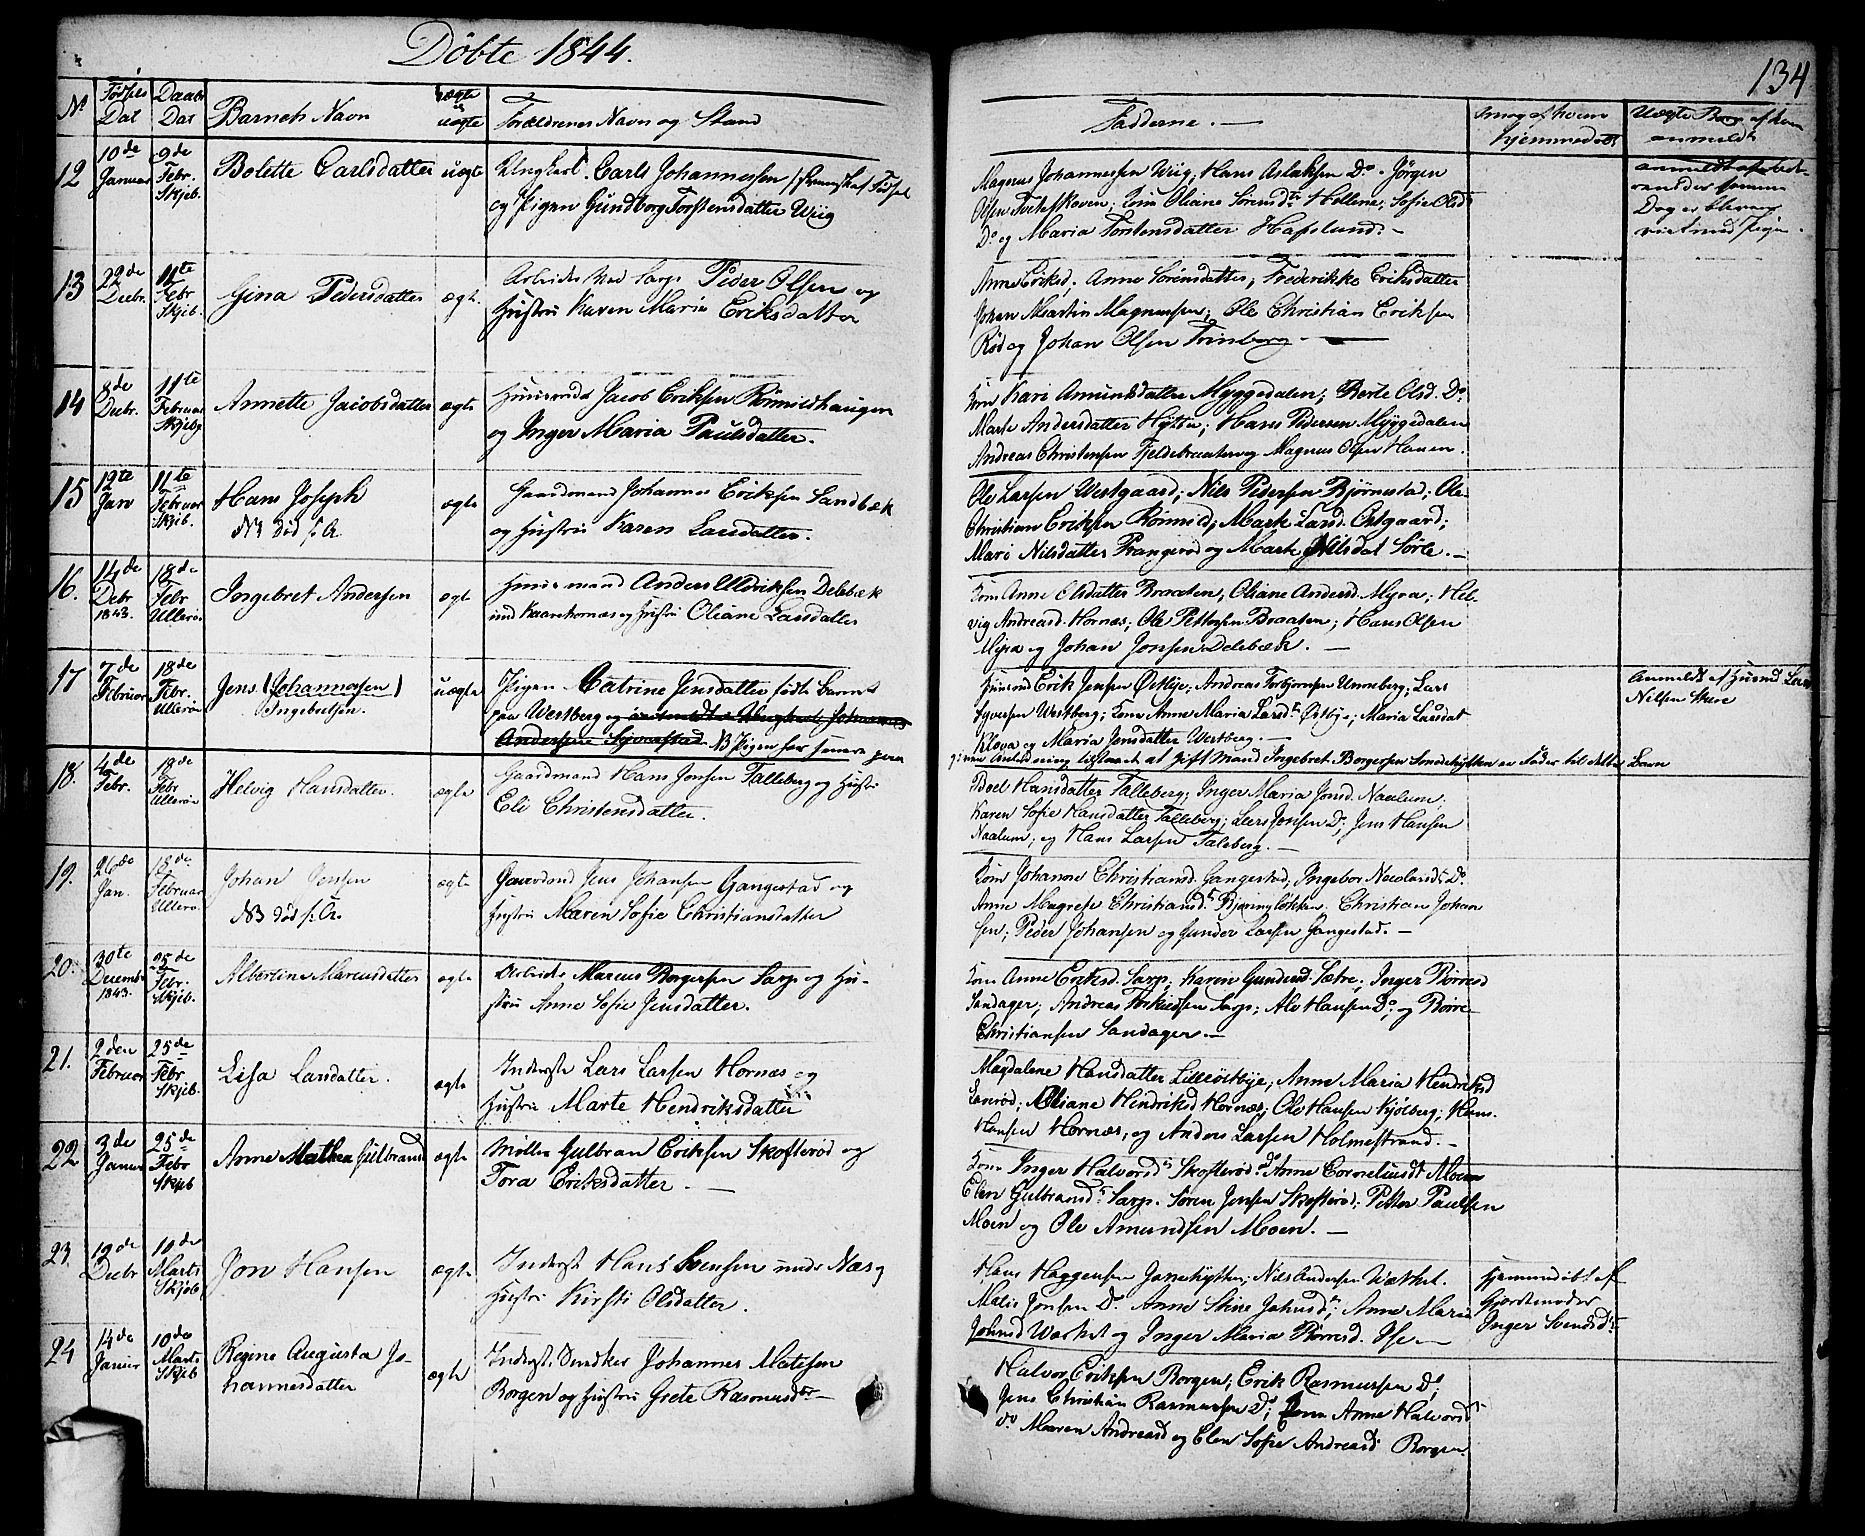 Döbte 1844.
134
No Födsels Dat Daabs Dat Barnets Navn ægte uægte Forældrenes Navn og Stand
Fadderne. —
hjemmedøbt
Uægte Børn af hvem
anmeldt
12 10de Januar 9de Febr. Skjeb. Bolette Carlsdatter uægte Ungkarl Carls Johannessen
og Pigen Gundborg Torstensdatter Wiig
Magnus Johannessen Wiig; Hans Aslaksen Do. Jörgen
Olsen Tvetes Koven; Kone Oliane Sörensdtr Hellene; Sofie Olsd
Do og Maria Torstensdatter Hafslund. —
13 29de Decbr. 11te Febr Skjeb. Gina Pedersdatter ægte Arbeider ved Sarps Peder Olsen og
Hustru Karen Maria Eriksdatter
Anne Eriksd. Anne Sörensdatter; Frederikke Eriksdatter
Johan Martin Magnussen; Ole Christian Eriksen
Röd og Johan Olsen
14 8de Decbr. 11te Februar Skjeb. Annette Jacobsdatter ægte Huusmand Jacob Eriksen Rönnildhaugen
og Inger Maria Paulsdatter.
Kone Kari Amundsdatter Myggedalen; Berte Olsd. Do
Marte Andersdatter Hytten; Hans Pedersen Myggedalen
Andreas Christensen og Magnus Olsen
15 12te Jan 11te Februar Skjeb. Hans Joseph
NB död s. A.
ægte Gaardmand Johannes Eriksen Sandbæk
og Hustru Karen Larsdatter.
Ole Larsen Westgaard; Nils Pedersen Bjørnestad; Ole
Christian Eriksen Rönnild; Marte Larsd. Ostgaard;
Mari Nilsdatter Prangeröd og Marte Nilsdat Sörle. —
16. 14de Debr 1843. 18de Febr Ulleröe Ingebret Andersen ægte Huusmand Anders Uldriksen Delebæk
und Hornes og Hustru Oliane Larsdatter
Kone Anne Olsdatter Braaten; Oliane Andersd. Myra; Hel-
vig Andreasd. Hornæs; Ole Pettersen Braaten; Hans Olsen
Myra og Johan Jonsen Delebæk. —
17 7de Februar 18de Febr. Ulleröe Jens (Johannesen)
Ingebretsen.
uægte Pigen Catrine Jensdatter födte Barnet
paa Westberg og Ungkarl Johannes
Andersen NB Pigen har senere paa
Huusmd Erik Jensen Östbye; Andreas Torbjornsen Unneberg; Lars
Syversen Westberg; Kone Anne Maria Larsdtr Östbye; Maria Larsdat
Klova og Maria Jensdatter Westberg. —
Anmeldt af Huusmd. Lars
Nilsen
given Anledning tilstaaet at gift Mand Ingebret Borgersen er Fader til dette Barn
18. 4de Febr. 18de Febr Ulleröe Helvig Hansdatter. ægte Gaardmand Hans Jonsen Talleberg og Hustru
Eli Christensdatter.
Boel Hansdatter Talleberg; Inger Maria Jonsd. Naalum.
Karen Sofie Hansdatter Talleberg; Lars Jonsen Do; Jens Hansen
Naalum; og Hans Larsen Taleberg. —
19. 26de Jan. 18de Februar Ulleröe Johan Jensen
NB död s. A.
ægte Gaardmd Jens Johansen Gangestad og
Hustru Maren Sofie Christiansdatter
Kone Johanne Christiansd. Gangestad, Ingebor Do.
Anne Magrete Christiansdtr Bjønnyløkken. Christian Johan
sen; Peder Johansen og Gunder Larsen Gangestad. —
20. 30te December 1843. 25de Febr. Skjeb. Albertine Marcusdatter ægte Arbeider Marcus Borgersen Sarps og Hu-
stru Anne Sofie Jensdatter.
Kone Anne Eriksd. Sarps; Karen Gundersd Sætre; Inger Börresd
Sandager; Andreas Sarps; Ale Hansen Do; og Börre
Christiansen Sandager. —
21. 2den Februar 25de Febr Skjeb. Lisa Larsdatter. ægte Inderst Lars Larsen Hornæs og
Hustru Marte Hendriksdatter
Magdalene Hansdatter Lilleöstbye; Anne Maria Hendriksd
Oliane Hendriksd Hornæs; Ole Hansen Kjölberg; Hans
Hansen Hornæs, og Anders Larsen Holmestrand. —
22 3de Januar 25de Febr Skjeb Anne Mathea Gulbrandsd ægte Möller Gulbran Eriksen Skofteröd og
Tora Eriksdatter. —
Kone Inger Halvorsdtr Skofteröd. Anne Corneliusdt Moen
Elen Gulbrandsdtr Sarps. Sören Jensen Skofteröd; Petter Paulsen
Moen og Ole Amundsen Moen. —
23. 19de Decbr 10de Marts Skjeb. Jon Hansen ægte Inderst Hans Svensen under Næs og
Hustru Kirsti Olsdatter.
Hans Haggensen Janehytten; Nils Andersen Wæthet.
Matis Jonsen Do. Anne Stine Johnsd; Anne Maria
Johnsd og Inger Maria Börresd. —
Hjemmedöbt af
Gjordemoder
Inger Svendsdtr
24 14de Januar 10de Marts Skjeb Regine Augusta Jo-
hannesdatter
ægte Inderst Snedker Johannes Matesen
Borgen og Hustru Grete Rasmusdtr —
Halvor Eriksen Borgen; Erik Rasmussen Do;
Jens Christian Rasmussen Do; Kone Anne Halvorsd
do Maren Andreasd og Elen Sofie Andreasd Borgen.